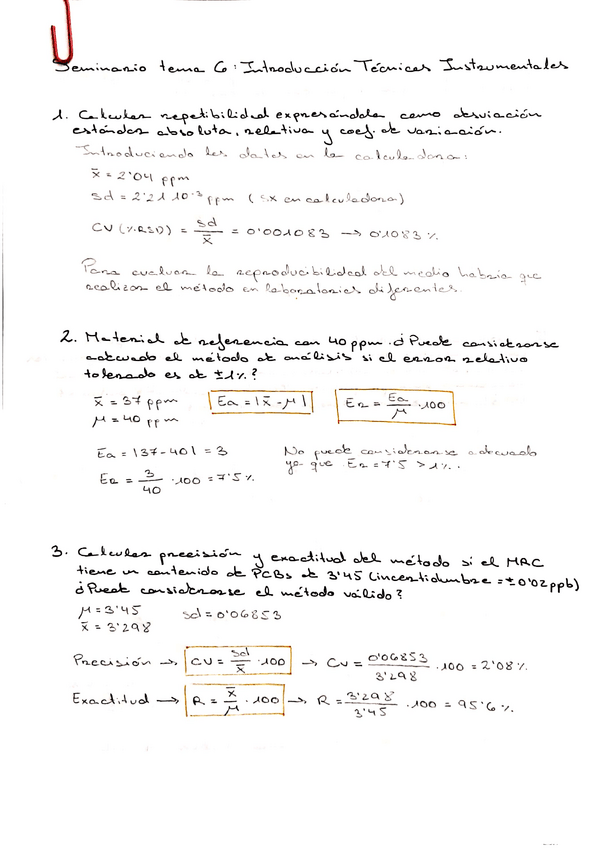 Seminario tema 6: Introducción Técnicas Instrumentales
1. Calcular repetibilidad expresándola como desviación
estándar absoluta, relativa y coef. de variación.
Introduciendo los datos en la calculadora:
x̄ = 2'04 ppm
sd = 2'21·10⁻³ ppm (s.x en calculadora)
CV (%RSD) = sd/x̄ = 0'001083 → 0'1083 %
Para evaluar la reproducibilidad del medio habría que
realizar el método en laboratorios diferentes.
2. Material de referencia con 40 ppm. ¿Puede considerarse
adecuado el método de análisis si el error relativo
tolerado es de ±1%?
x̄ = 37 ppm
μ = 40 ppm
Ea = |x̄ - μ|
Er = Ea/μ · 100
Ea = |37-40| = 3
Er = 3/40 · 100 = 7'5 %
No puede considerarse adecuado
ya que Er = 7'5 > 1%.
3. Calcular precisión y exactitud del método si el MRC
tiene un contenido de PCBs de 3'45 (incertidumbre = ±0'02 ppb)
¿Puede considerarse el método válido?
μ = 3'45 sd = 0'06853
x̄ = 3'298
Precisión → CV = sd/x̄ · 100 → CV = 0'06853/3'298 · 100 = 2'08 %
Exactitud → R = x̄/μ · 100 → R = 3'298/3'45 · 100 = 95'6 %.